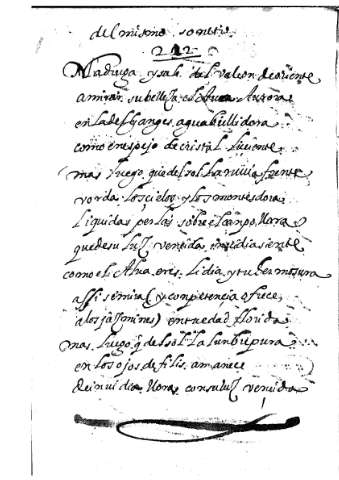 del mismo soneto.
212.
Madruga y sale del valcon de oriente
a mirar su belleza el Aurora
en la del Ganges agua bullidora
como en espejo de cristal luciente.
mas luego que del sol la ruvia frente
los cielos y los montes dora
liquidas perlas sobre el campo llora
que de su luz vencida envidia siente
como el Alva eres Lidia y tu hermosura
assi se mira y competencia ofrece
a los jazmines en tu edad florida
mas luego q del sol la lumbre pura
en los ojos de filis amanece
de invidia lloras con su luz vencida